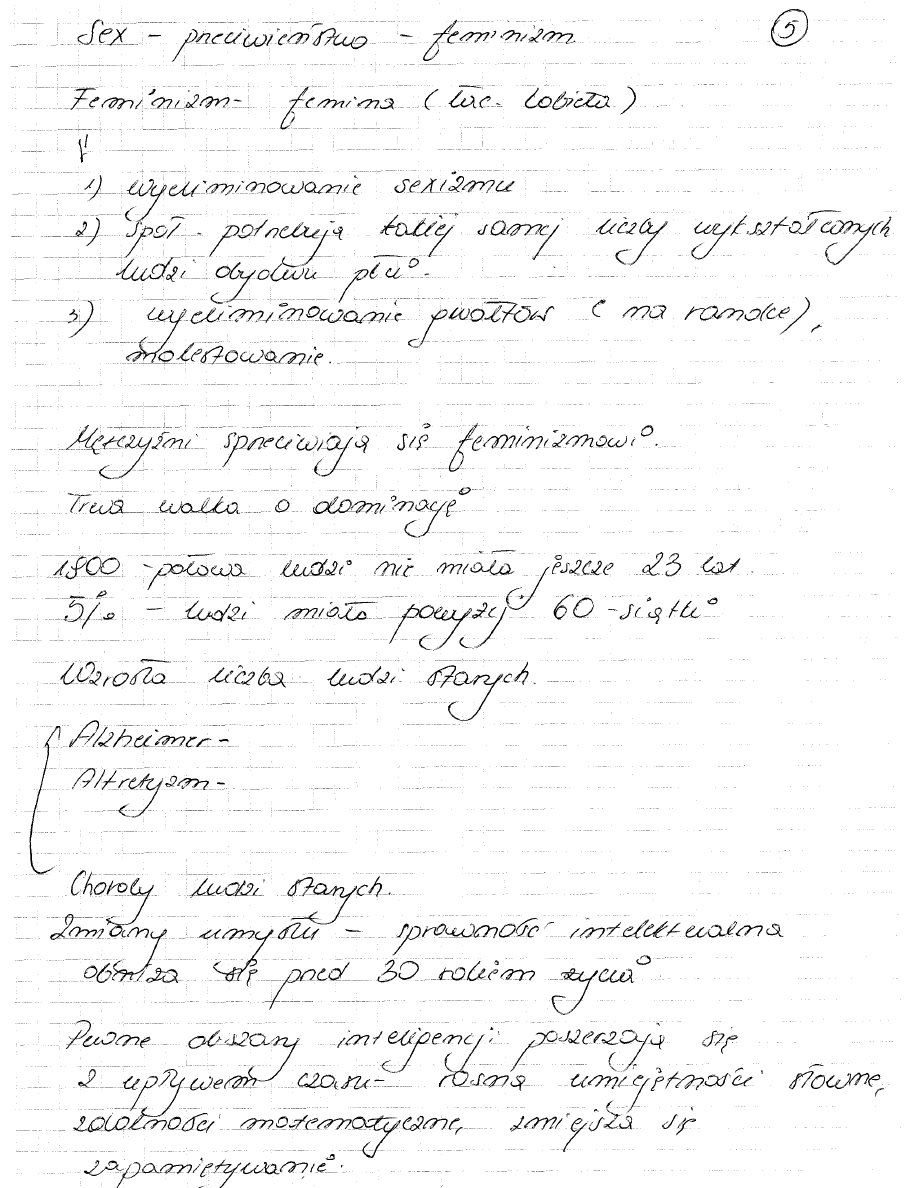 Sex - przeciwieństwo - feminizm
5
Feminizm - femina (łac. kobieta)
1) wyeliminowanie sexizmu
2) społ. potrzebują takiej samej liczby wykształconych
ludzi obydwu płci.
3) wyeliminowanie gwałtów (na randce),
molestowanie.
Mężczyźni sprzeciwiają się feminizmowi.
Trwa walka o dominację
1800 - połowa ludzi nie miała jeszcze 23 lat.
5% - ludzi miało powyżej 60-siątki
Wzrosła liczba ludzi starych.
Alzheimer -
Altretyzm -
Choroby ludzi starych.
Zmiany umysłu - sprawność intelektualna
obniża się przed 30 rokiem życia
Pewne obszary inteligencji poszerzają się
z upływem czasu - rosną umiejętności słowne,
zdolności matematyczne, zmiejsza się
zapamiętywanie.